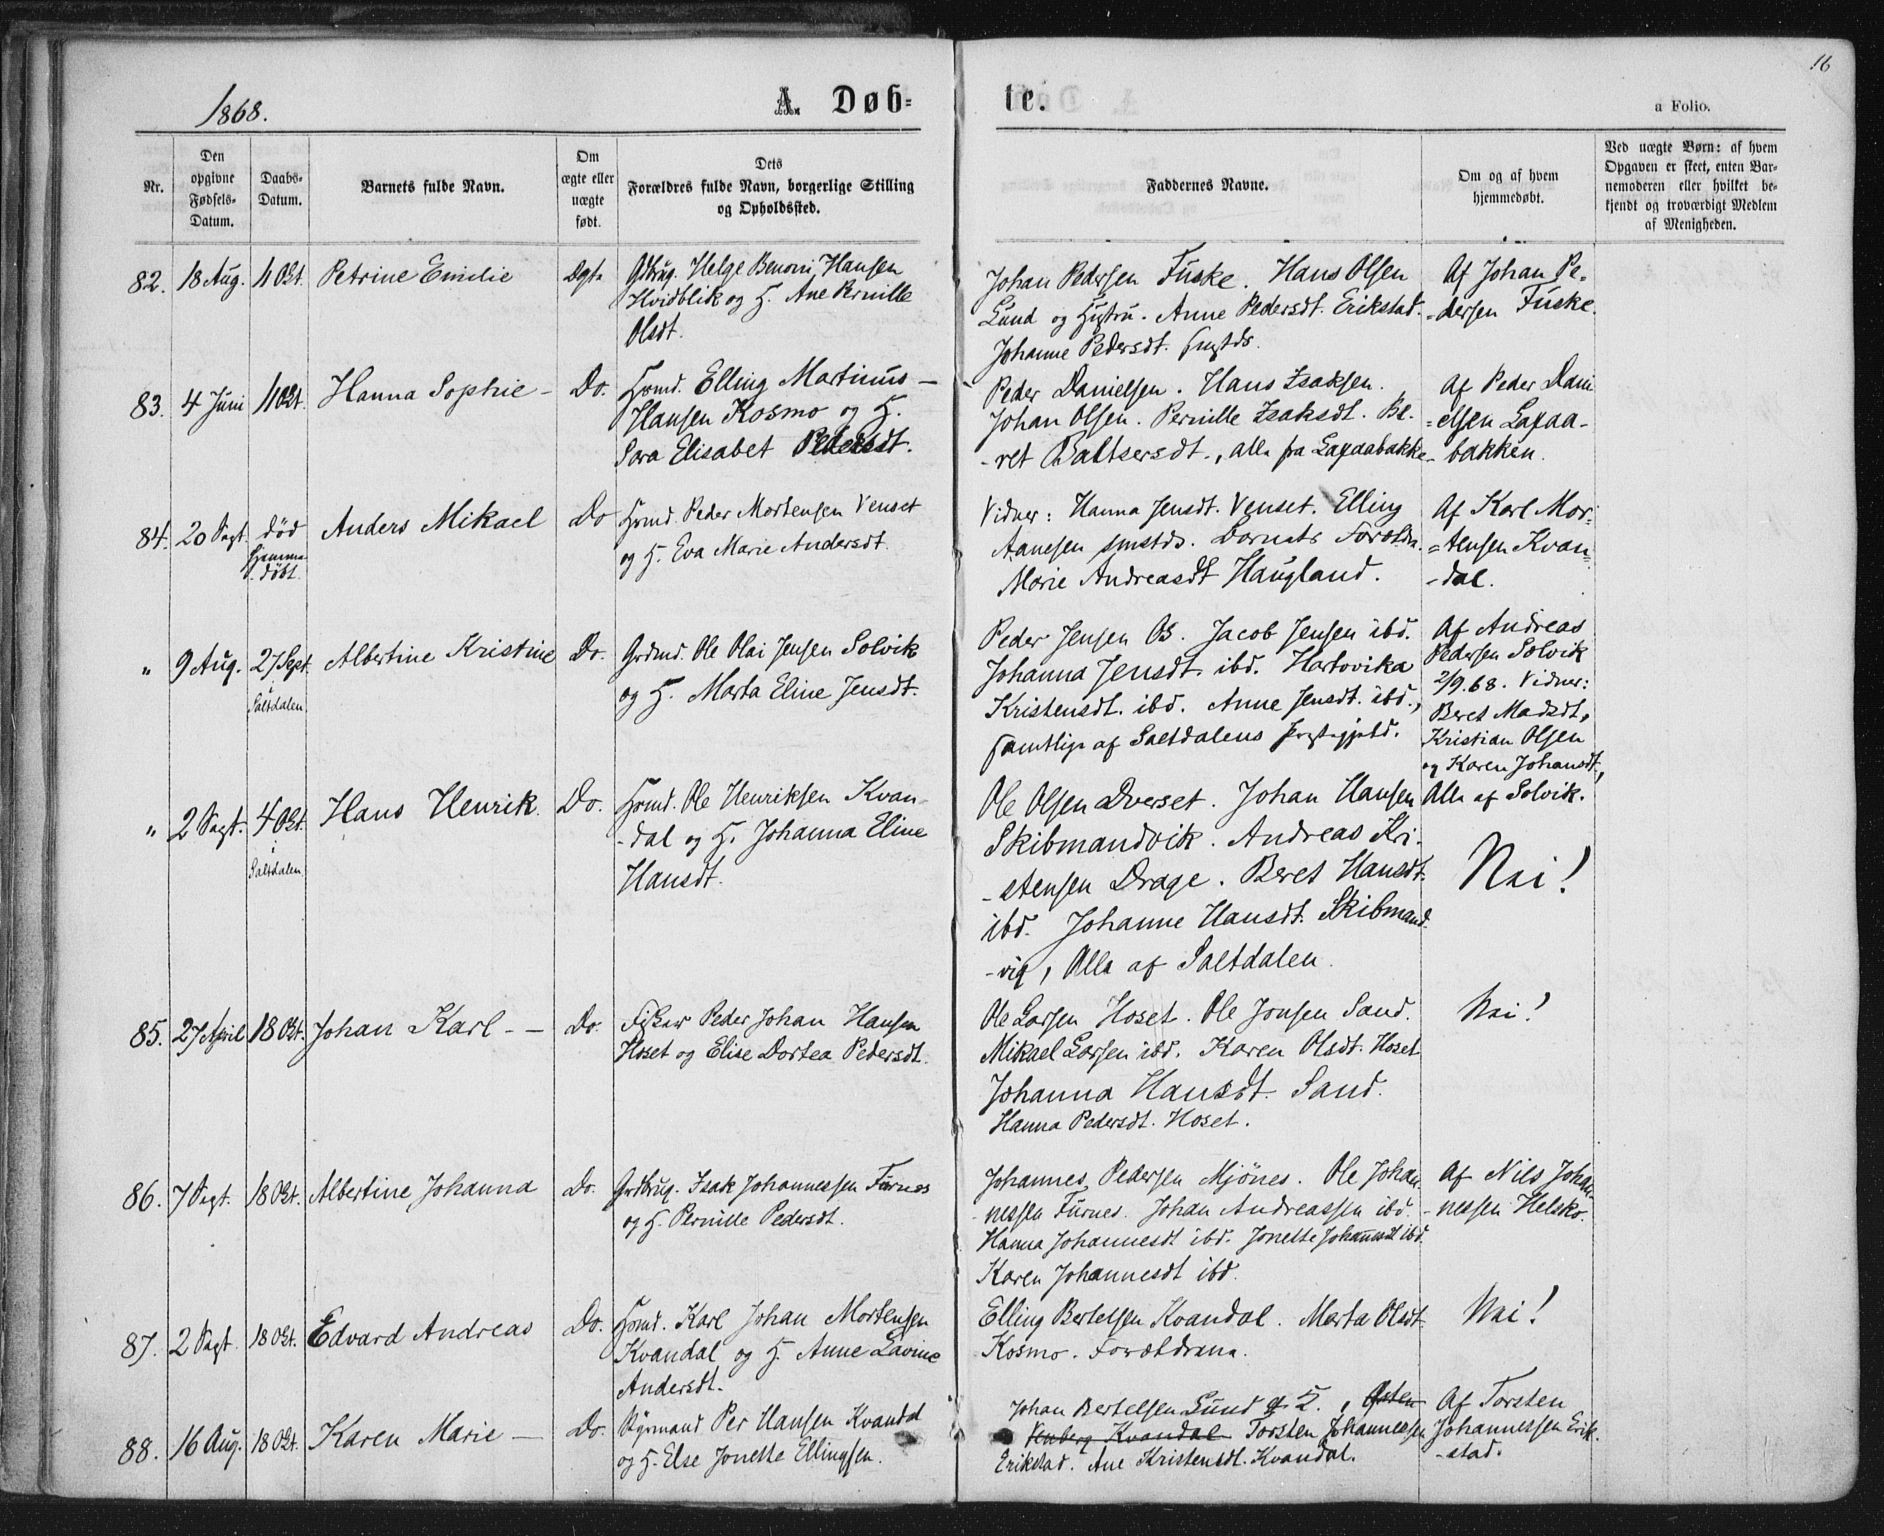 1868.
A. Døb-
te.
16
a Folio.
Nr.
Den
opgivne
Fødsels-
Datum.
Daabs-
Datum.
Barnets fulde Navn.
Om
ægte eller
uægte
født.
Dets
Forældres fulde Navn, borgerlige Stilling
og Opholdssted.
Faddernes Navne.
Om og af hvem
hjemmedøbt.
Ved uægte Børn: af hvem
Opgaven er skeet, enten Bar-
nemoderen eller hvilket be-
kjendt og troværdigt Medlem
af Menigheden.
82. 18 Aug. 11 Okt. Petrine Emilie
Helge Benoni Hansen
Hvidblik og H. Ane Pernille
Olsdt.
Johan Pedersen Fuske. Hans Olsen
Lund og Hustru. Anne Pedersdt. Erikstad.
Johanne Pedersdt.
Af Johan Pe-
-dersen Fuske.
83. 4 Juni 11 Okt. Hanna Sophie - Do.
Hrmd. Elling Martinus -
Hansen Kosmo og H.
Sara Elisabet Pedersdt.
Peder Danielsen. Hans Isaksen.
Johan Olsen. Pernille Isaksdt. Be-
-ret Baltsersdt., alle fra Laxaabakke
Af Peder Dani
-elsen Laxaa-
bakken.
84. 20 Sept. død
hjemme
døbt.
Anders Mikael Do
Hrmd. Peder Mortensen Venset
og H. Eva Marie Andersdt.
Vidner: Hanna Jensdt. Venset. Elling
Aanesen smstds. Barnets
Marie Andreasdt Haugland.
Af Karl Mor-
-tensen Kvan-
-dal.
" 9 Aug. 27 Sept.
i
Saltdalen
Albertine Kristine Do.
Grdmd. Ole Olai Jensen Solvik
og H. Marta Eline Jensdt.
Peder Jensen Os. Jacob Jensen ibd.
Johanna Jensdt. ibd. Hartvika
Kristensdt. ibd. Anne Jensdt. ibd.,
samtlige af Saltdalens Prgstegjæld.
Af Andreas
Pedersen Solvik
2/9.68. Vidner:
Beret Madsdt,
Kristian Olsen
og Karen Johansdt,
Alle af Solvik.
" 2 Sept. 4 Okt.
i
Saltdalen
Hans Henrik. Do.
Hrmd. Ole Henriksen Kvan-
-dal og H. Johanna Eline
Hansdt.
Ole Olsen Dverset. Johan Hansen
Skibmandvik. Andreas Kri-
-stensen Drage. Beret Hansdt.
ibd. Johanne Hansdt. Skibmand-
-vig, Alle af Saltdalen.
Nei!
85. 27 April 18 Okt. Johan Karl - - Do.
Fisker Peder Johan Hansen
Hoset og Elise Dortea Pedersdt.
Ole Larsen Hoset. Ole Jonsen Sand.
Mikael Larsen ibd. Karen Olsdt. Hoset
Johanna Hansdt. Sand.
Hanna Pedersdt. Hoset.
Nei!
86. 7 Sept. 18 Okt. Albertine Johanna Do.
Grdbrug. Isak Johannessen Furnes
og H. Pernille Pedersdt.
Johannes Pedersen Mjönes. Ole Johan-
-nessen Furnes. Johan Andreassen ibd.
Hanna Johannesdt ibd. Jonette Johannesdt ibd.
Karen Johannesdt ibd.
Af Nils Johan-
-nessen Helsko.
87. 2 Sept. 18 Okt. Edvard Andreas Do.
Hrmd. Karl Johan Mortensen
Kvandal og H. Anne Lavine
Andersdt.
Elling Bertelsen Kvandal. Marta Olsdt.
Kosmo. Forældrene.
Nei!
88. 16 Aug. 18 Okt. Karen Marie - Do.
Per Hansen Kvandal
og H. Else Jonette Ellingsen.
Johan Bertelsen Lund
Kvandal Torsten Johannessen
Erikstad. Ane Kristensdt. Kvandal.
Af Torsten
Johannessen Erik-
-stad.